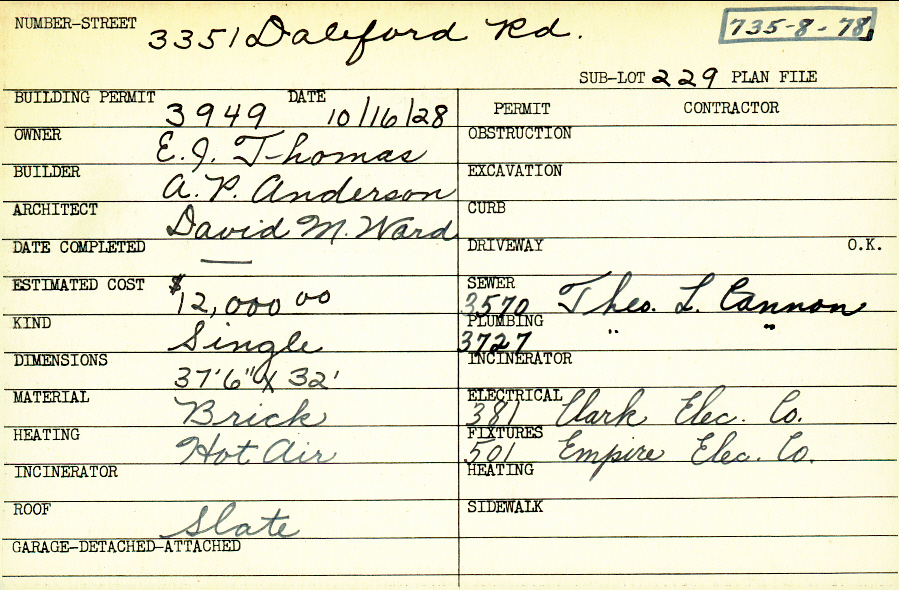 NUMBER-STREET 3351 Daleford Rd. 735-8-78
SUB-LOT 229 PLAN FILE
BUILDING PERMIT 3949 DATE 10/16/28
PERMIT CONTRACTOR
OWNER E.J. Thomas
OBSTRUCTION
BUILDER A. P. Anderson
EXCAVATION
ARCHITECT David M. Ward
CURB
DATE COMPLETED —
DRIVEWAY O.K.
ESTIMATED COST $12,000 00
SEWER 3570 Theo. L. Cannon
KIND Single
PLUMBING 3727 " "
DIMENSIONS 37'6" X 32'
INCINERATOR
MATERIAL Brick
ELECTRICAL 381 Clark Elec. Co.
HEATING Hot Air
FIXTURES 501 Empire Elec. Co.
INCINERATOR
HEATING
ROOF Slate
SIDEWALK
GARAGE-DETACHED-ATTACHED